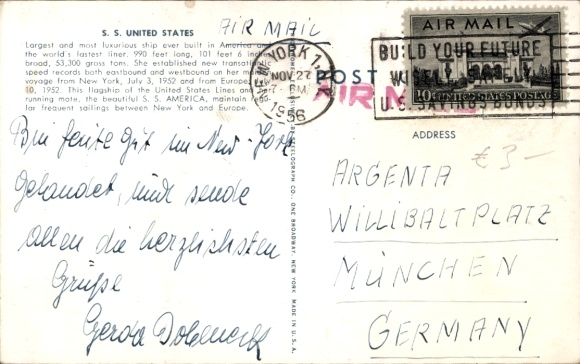 S. S. UNITED STATES
AIR MAIL
Largest and most luxurious ship ever built in America and
the world's fastest liner. 990 feet long, 101 feet 6 inches
broad, 53,300 gross tons. She established new transatlantic
speed records both eastbound and westbound on her maiden
voyage from New York, July 3, 1952 and from Europe, July
10, 1952. This flagship of the United States Lines and her
running mate, the beautiful S. S. AMERICA, maintain regu-
lar frequent sailings between New York and Europe.
Bin heute gut in New-York
gelandet, und sende
allen die herzlichsten
Grüße
Gerda
NEW YORK 1, N.Y.
NOV 27
7-PM
1956
POST
AIR MAIL
AIR MAIL
10¢ UNITED STATES POSTAGE
BUILD YOUR FUTURE
WISELY SAFELY
U.S. SAVINGS BONDS
CO., ONE BROADWAY, NEW YORK. MADE IN U.S.A.
ADDRESS
€ 3-
ARGENTA
WILLIBALTPLATZ
MÜNCHEN
GERMANY